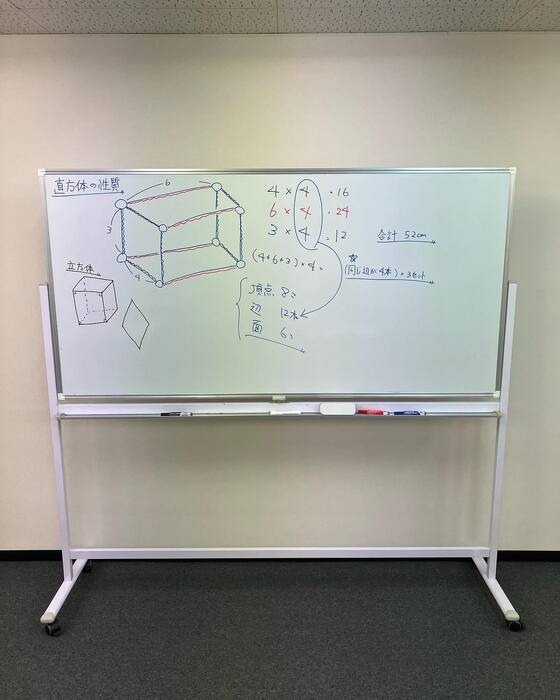 直方体の性質
6
3
4
立方体
4 × 4 = 16
6 × 4 = 24
3 × 4 = 12
(4+6+3)×4=
合計 52cm
(同じ辺が4本)×3セット
頂点 8コ
辺 12本
面 6コ